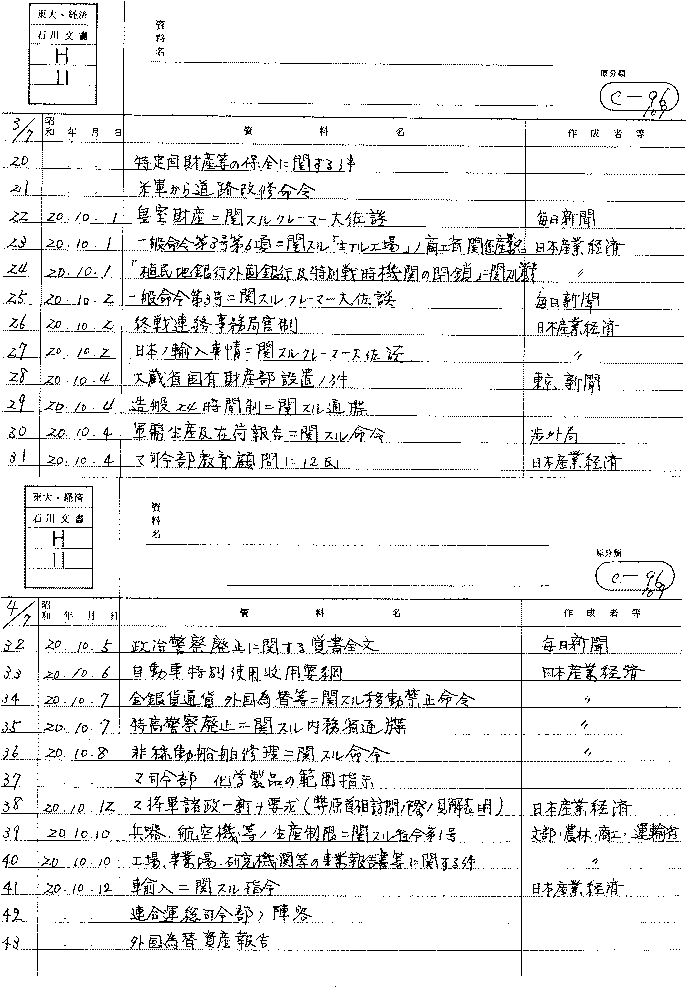 東大・経済
石川文書
H
11
資料名
原分類
C-96
109
3/7 昭和 年 月 日 資料名 作成者等
20 特定国財産等の保全に関する件
21 米軍から道路改修命令
22 20.10.1 皇室財産ニ関スルクレーマー大佐談 毎日新聞
23 20.10.1 一般命令第3号第6項ニ関スル「モデル工場」ノ商工省関係産業 日本産業経済
24 20.10.1 「植民地銀行外国銀行及特別戦時機関の閉鎖」ニ関スル 〃
25 20.10.2 一般命令第3号ニ関スルクレーマー大佐談 毎日新聞
26 20.10.2 終戦連絡事務局官制 日本産業経済
27 20.10.2 日本ノ輸入事情ニ関スルクレーマー大佐談 〃
28 20.10.4 大蔵省国有財産部設置ノ件 東京新聞
29 20.10.4 造船24時間制ニ関スル通牒
30 20.10.4 軍需生産及在荷報告ニ関スル命令 渉外局
31 20.10.4 マ司令部教育顧問に12氏 日本産業経済
東大・経済
石川文書
H
11
資料名
原分類
C-96
109
4/7 昭和 年 月 日 資料名 作成者等
32 20.10.5 政治警察廃止に関する覚書全文 毎日新聞
33 20.10.6 自動車特別使用収用要綱 日本産業経済
34 20.10.7 金銀貨通貨 外国為替等ニ関スル移動禁止命令 〃
35 20.10.7 特高警察廃止ニ関スル内務省通牒 〃
36 20.10.8 非稼動船舶修理ニ関スル命令 〃
37 マ司令部 化学製品の範囲指示
38 20.10.12 マ将軍諸政一新ヲ要求(幣原首相訪問ノ際ノ見解表明) 日本産業経済
39 20.10.10 兵器、航空機等ノ生産制限ニ関スル指令第1号 文部・農林・商工・運輸省
40 20.10.10 工場、事業場・研究機関等の事業報告書等に関する件 〃
41 20.10.12 輸入ニ関スル指令 日本産業経済
42 連合軍総司令部ノ陣容
43 外国為替資産報告